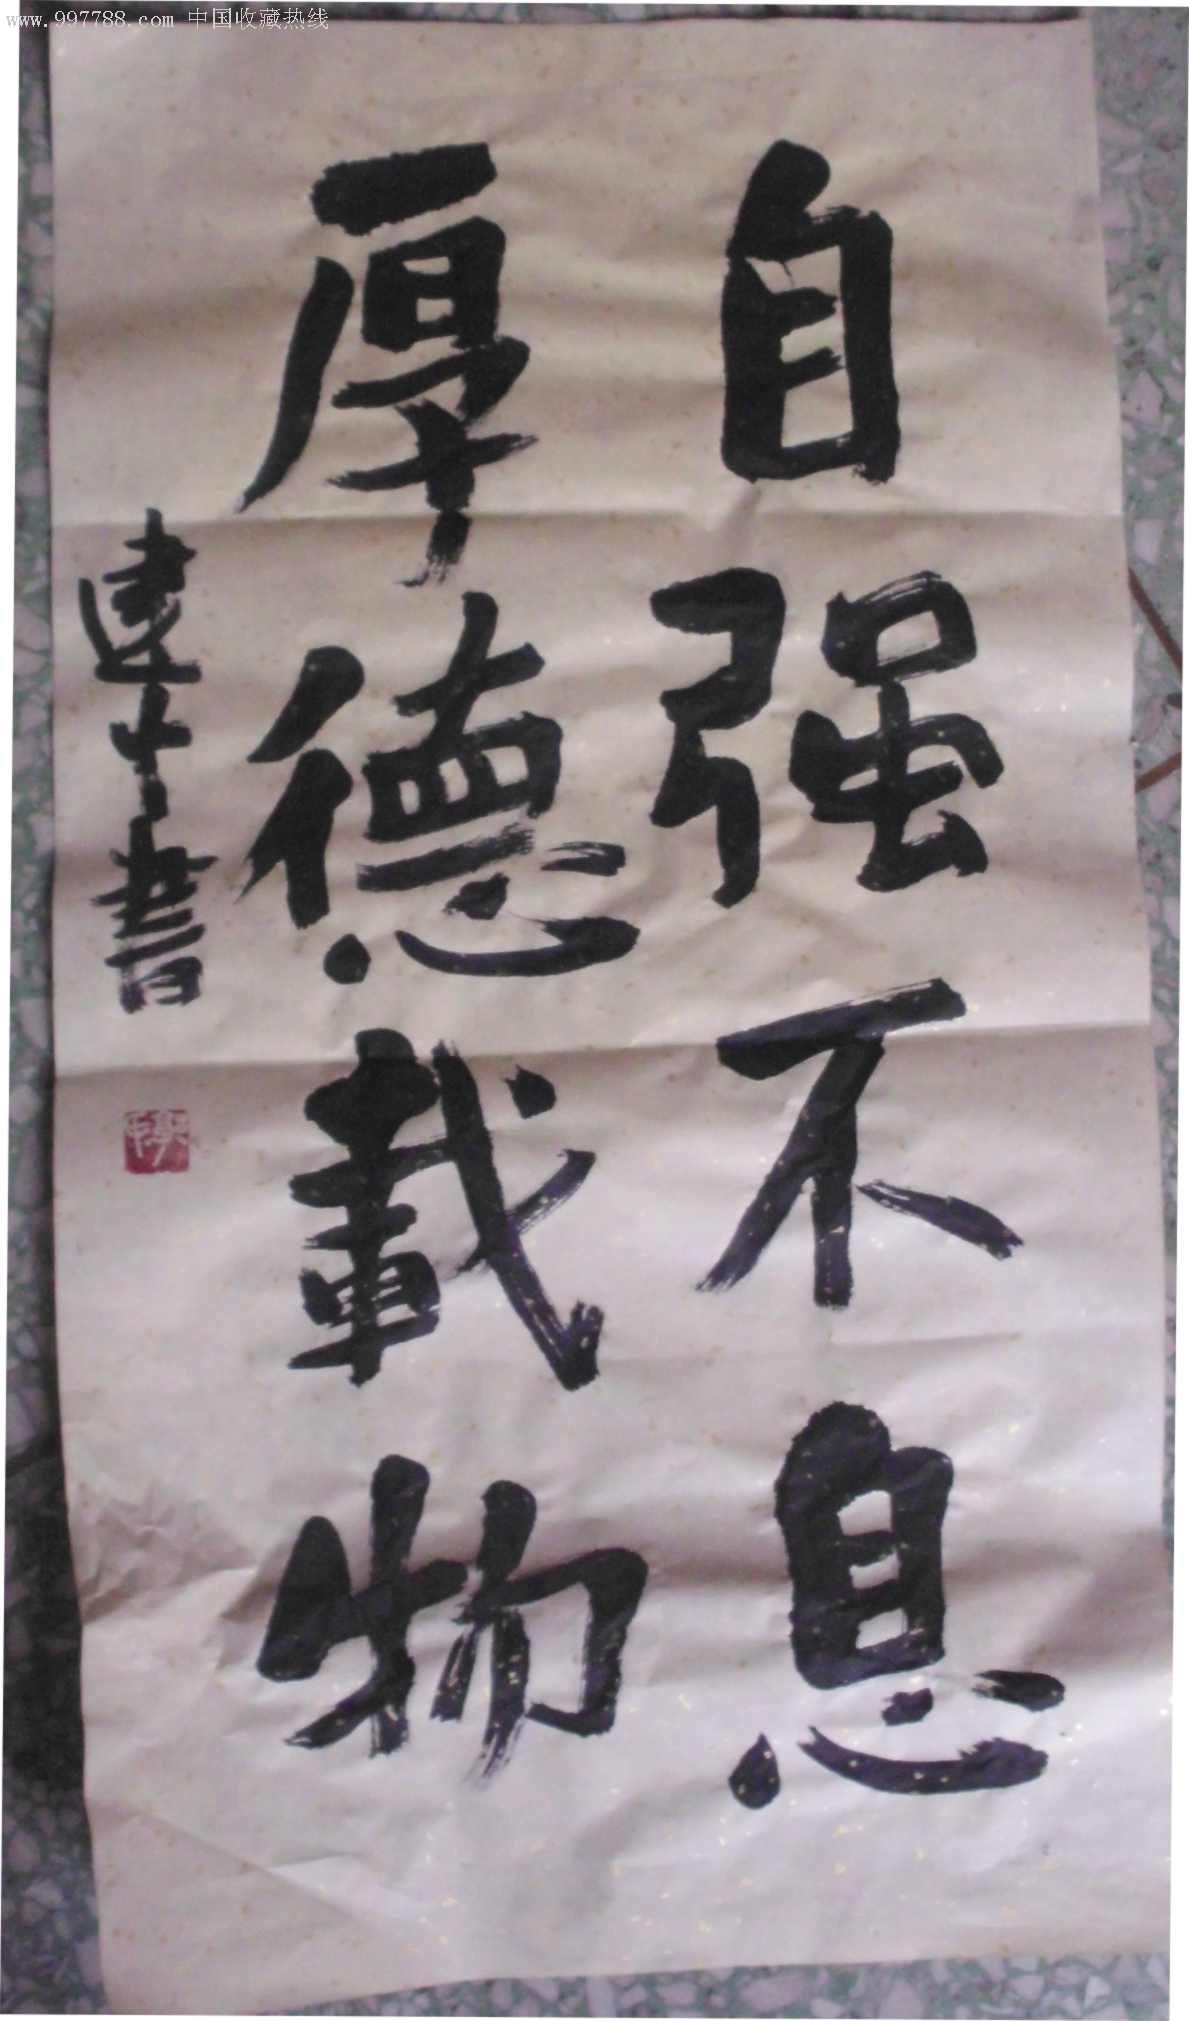 www.997788.com 中国收藏热线
自强不息
厚德載物
建中書